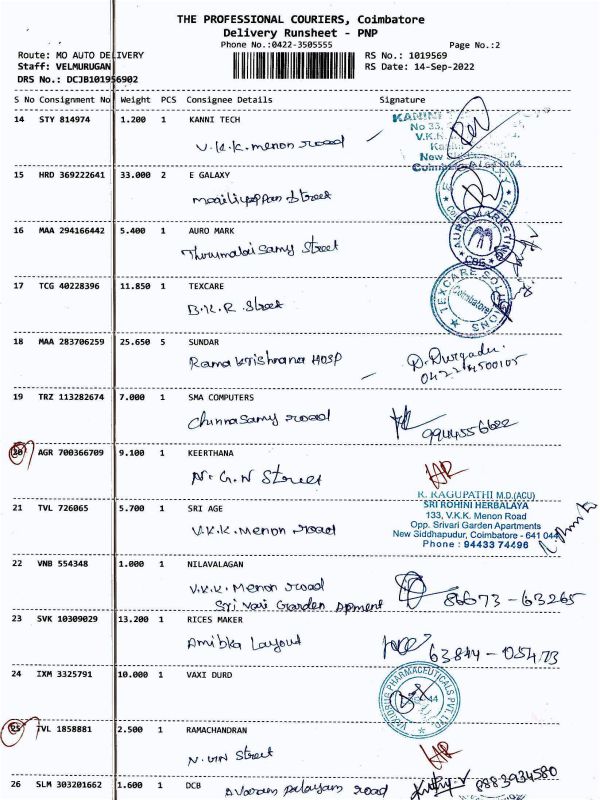 THE PROFESSIONAL COURIERS, Coimbatore
Delivery Runsheet - PNP
Phone No.:0422-3505555
Page No.:2
Route: MO AUTO DELIVERY
RS No.: 1019569
Staff: VELMURUGAN
RS Date: 14-Sep-2022
DRS No.: DCJB101956902
S No Consignment No Weight PCS Consignee Details Signature
14 STY 814974 1.200 1 KANNI TECH
V.K.K. menon road
15 HRD 369222641 33.000 2 E GALAXY
Street
16 MAA 294166442 5.400 1 AURO MARK
AURO MARKETING
Thirumalai Samy Street
17 TCG 40228396 11.850 1 TEXCARE
TEXCARE SOLUTIONS
Coimbatore
B.K.R Street
18 MAA 283706259 25.650 5 SUNDAR
Rama Krishnana HOSP
D. Durgadevi
04224500105
19 TRZ 113282674 7.000 1 SMA COMPUTERS
Chinnasamy road
20 AGR 700366709 9.100 1 KEERTHANA
N.G.N Street
R. RAGUPATHI M.D.(ACU)
21 TVL 726065 5.700 1 SRI AGE
SRI ROHINI HERBALAYA
133, V.K.K. Menon Road
V.K.K. Menon road
Opp. Srivari Garden Apartments
New Siddhapudur, Coimbatore - 641 044
Phone : 94433 74496
22 VNB 554348 1.000 1 NILAVALAGAN
V.K.K. Menon road
Sri Vari Garden Apment
86673-63265
23 SVK 10309029 13.200 1 RICES MAKER
Ambika Layout
63844-05473
24 IXM 3325791 10.000 1 VAXI DURD
PHARMACEUTICALS PVT LTD
25 TVL 1858881 2.500 1 RAMACHANDRAN
Street
26 SLM 303201662 1.600 1 DCB
Avaram palayam road
8883934580